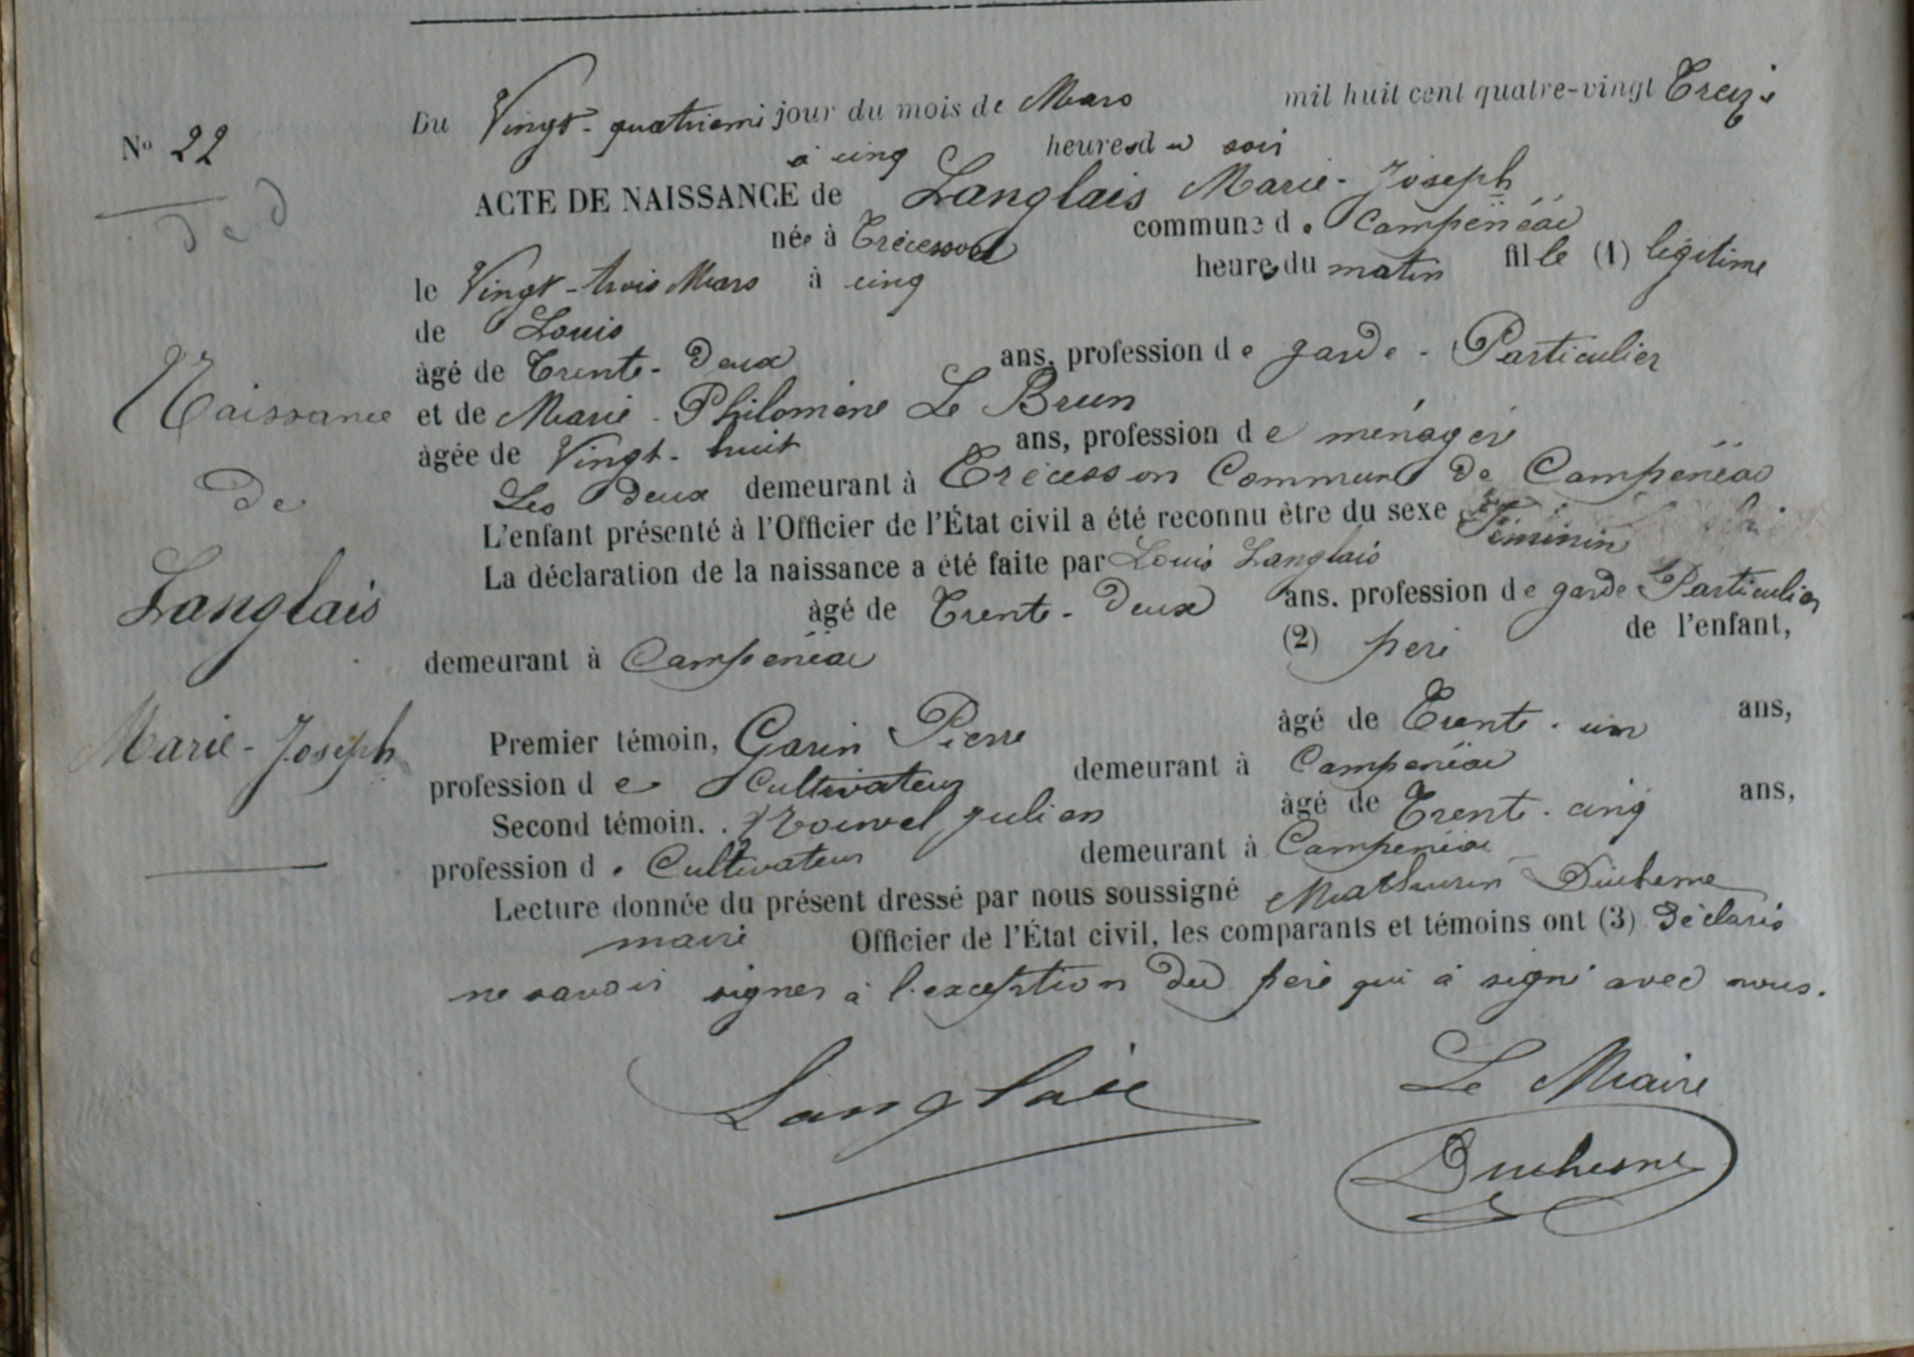 Nº 22
ded
Naissance
de
Langlais
Marie-Joseph
Du Vingt-quatrième jour du mois de Mars mil huit cent quatre-vingt Treize
à cinq heures du soir
ACTE DE NAISSANCE de Langlais Marie-Joseph
née à Trécesson commune de Campénéac
le Vingt-trois Mars à cinq heures du matin fille (1) légitime
de Louis
âgé de Trente-Deux ans, profession de garde-Particulier
et de Marie-Philomène Le Brun
âgée de Vingt-huit ans, profession de ménagère
Les Deux demeurant à Trécesson Commune de Campénéac
L'enfant présenté à l'Officier de l'État civil a été reconnu être du sexe Féminin
La déclaration de la naissance a été faite par Louis Langlais
âgé de Trente-Deux ans. profession de garde Particulier
demeurant à Campénéac (2) père de l'enfant,
Premier témoin, Garin Pierre âgé de Trente-un ans,
profession de Cultivateur demeurant à Campénéac
Second témoin. Nouvel Julien âgé de Trente-cinq ans,
profession de Cultivateur demeurant à Campénéac
Lecture donnée du présent dressé par nous soussigné Mathurin Duchesne
maire Officier de l'État civil, les comparants et témoins ont (3) Déclaré
ne savoir signer à l'exception du père qui à signé avec nous.
Langlais
Le Maire
Duchesne